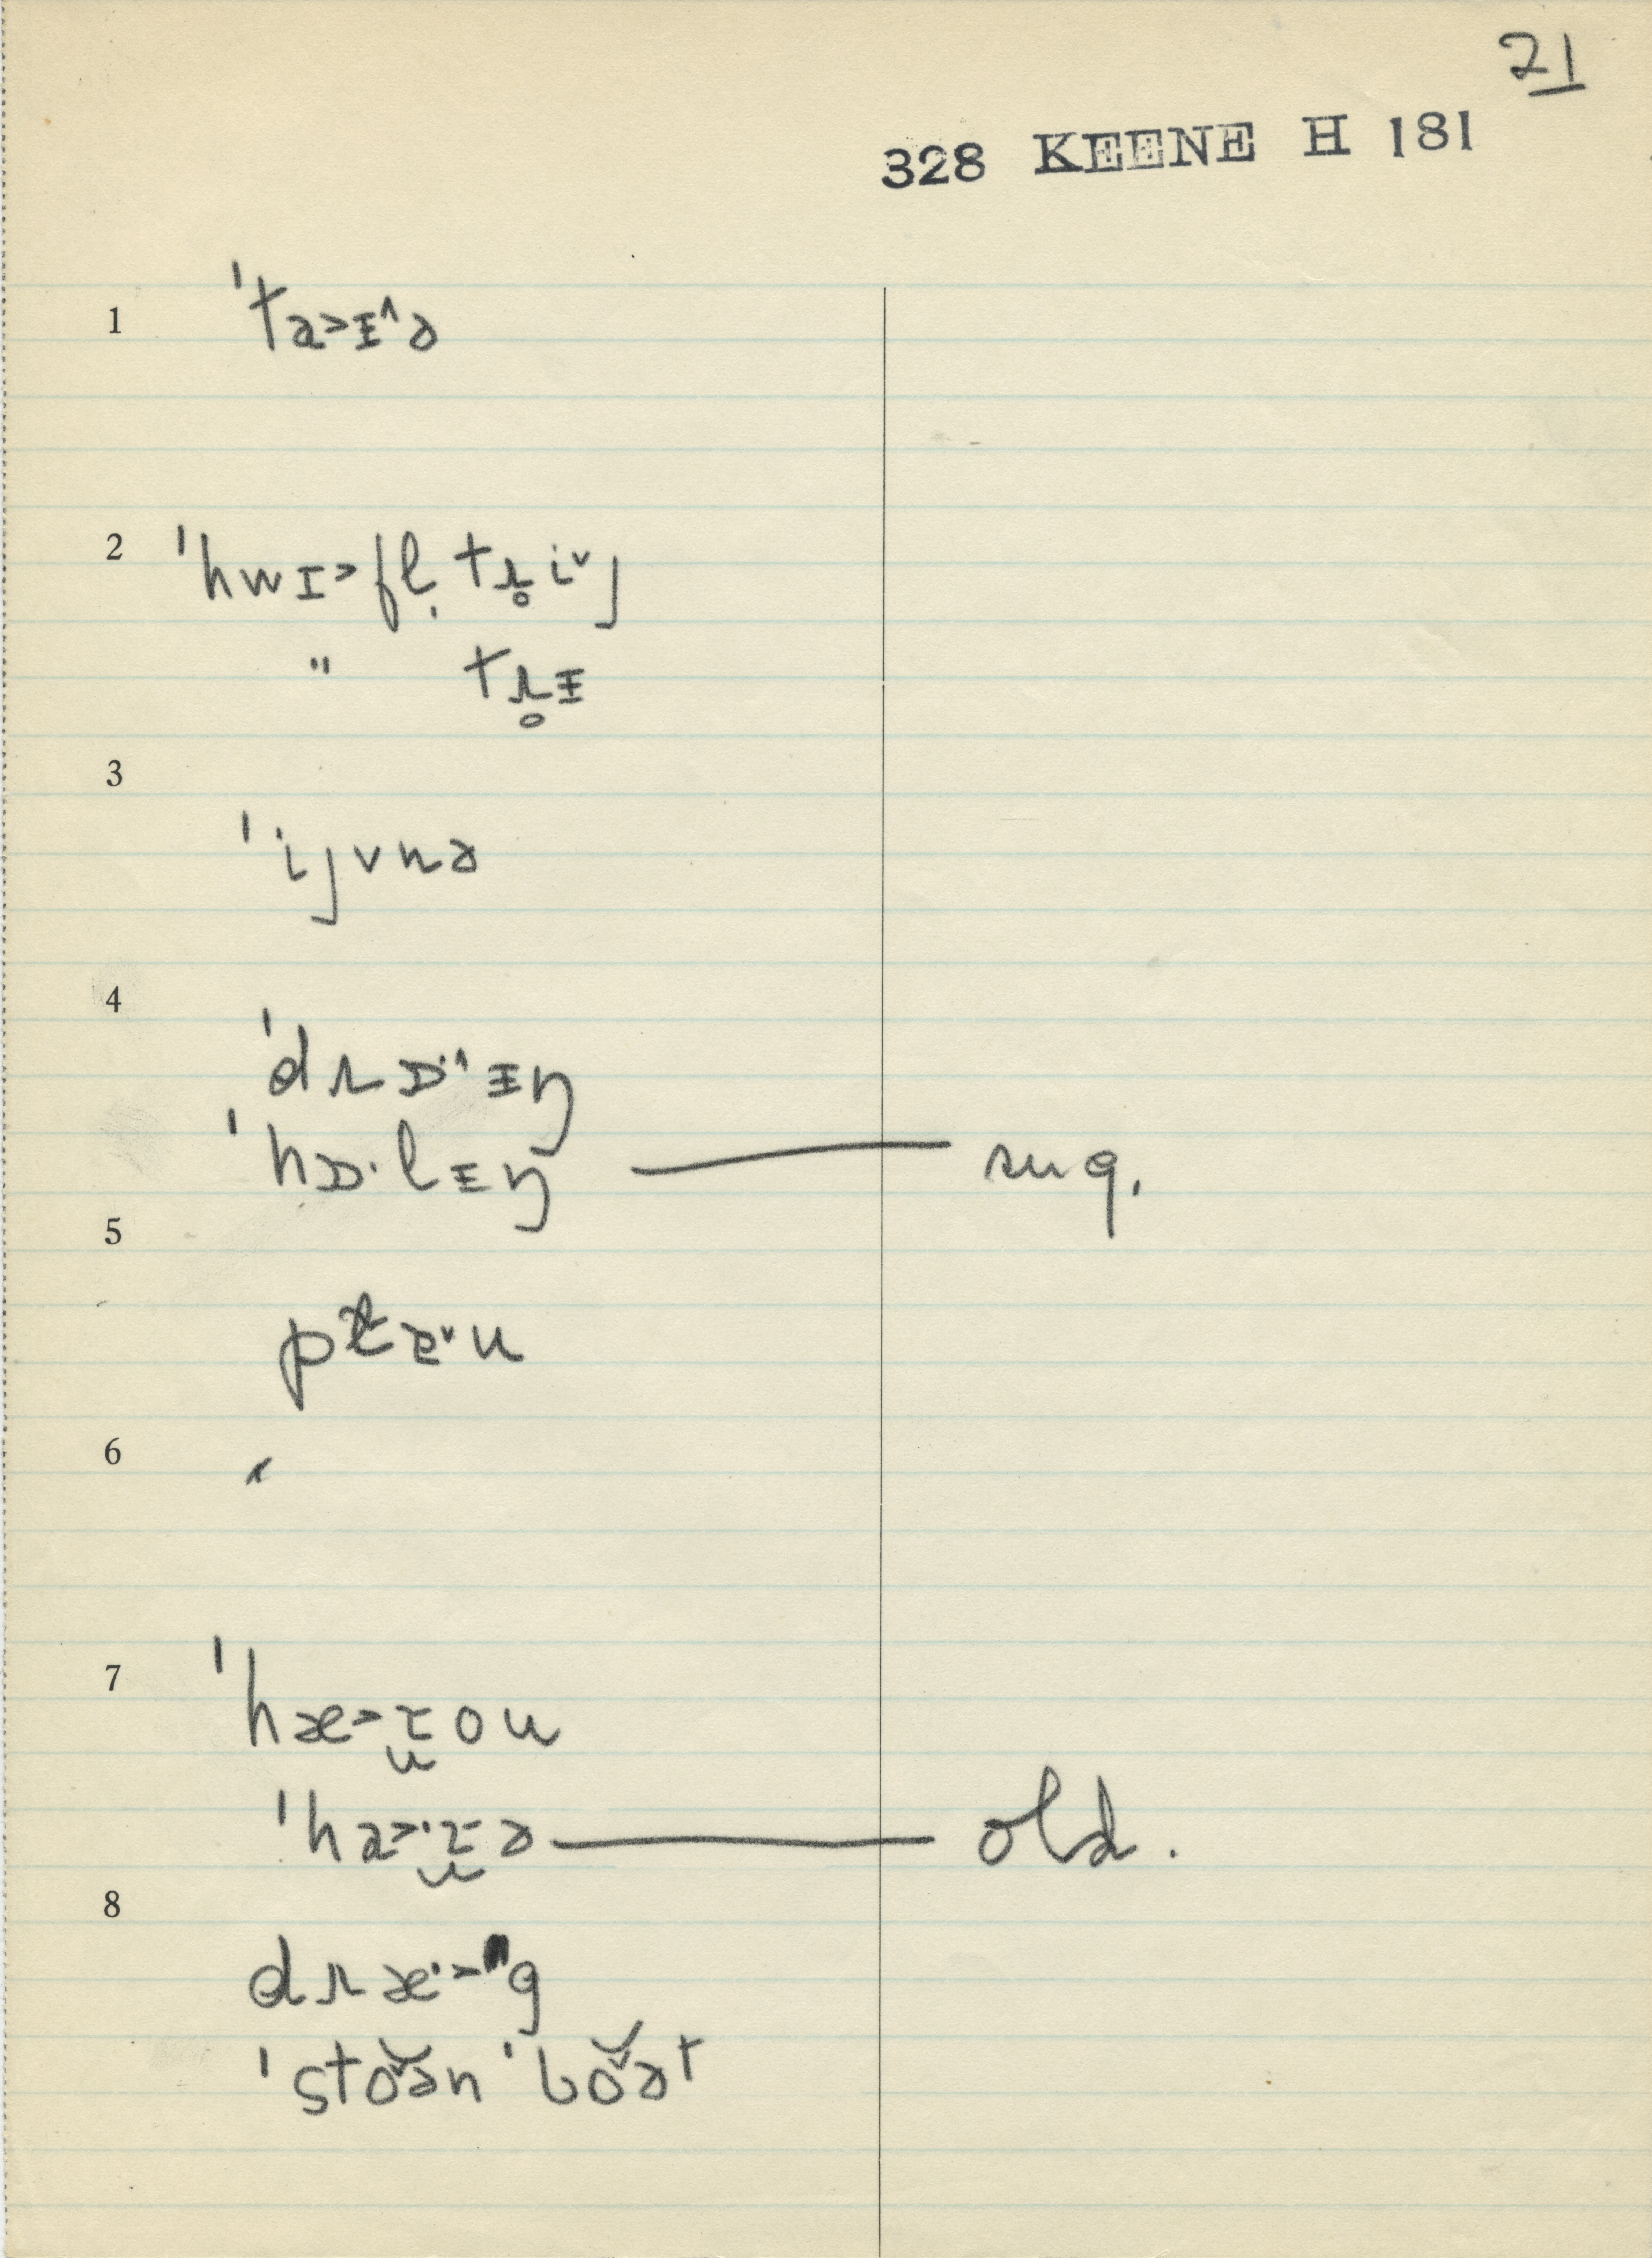 21
328 KEENE H 181
1 ˈta˃ᵻ˄ə
2 ˈhwɪ˃fl̩ tɹ̥i˅j
" tɹ̥ᵻ
3 ˈijvnə
4
ˈdɹɒ·˄ᵻŋ
ˈhɒ·lᵻŋ — sug.
5
6
7
ˈhæ˃t̬ou
ˈha˃·t̬ə — old.
8
dɹæ·˃g
ˈstoə̆n ˈboə̆t